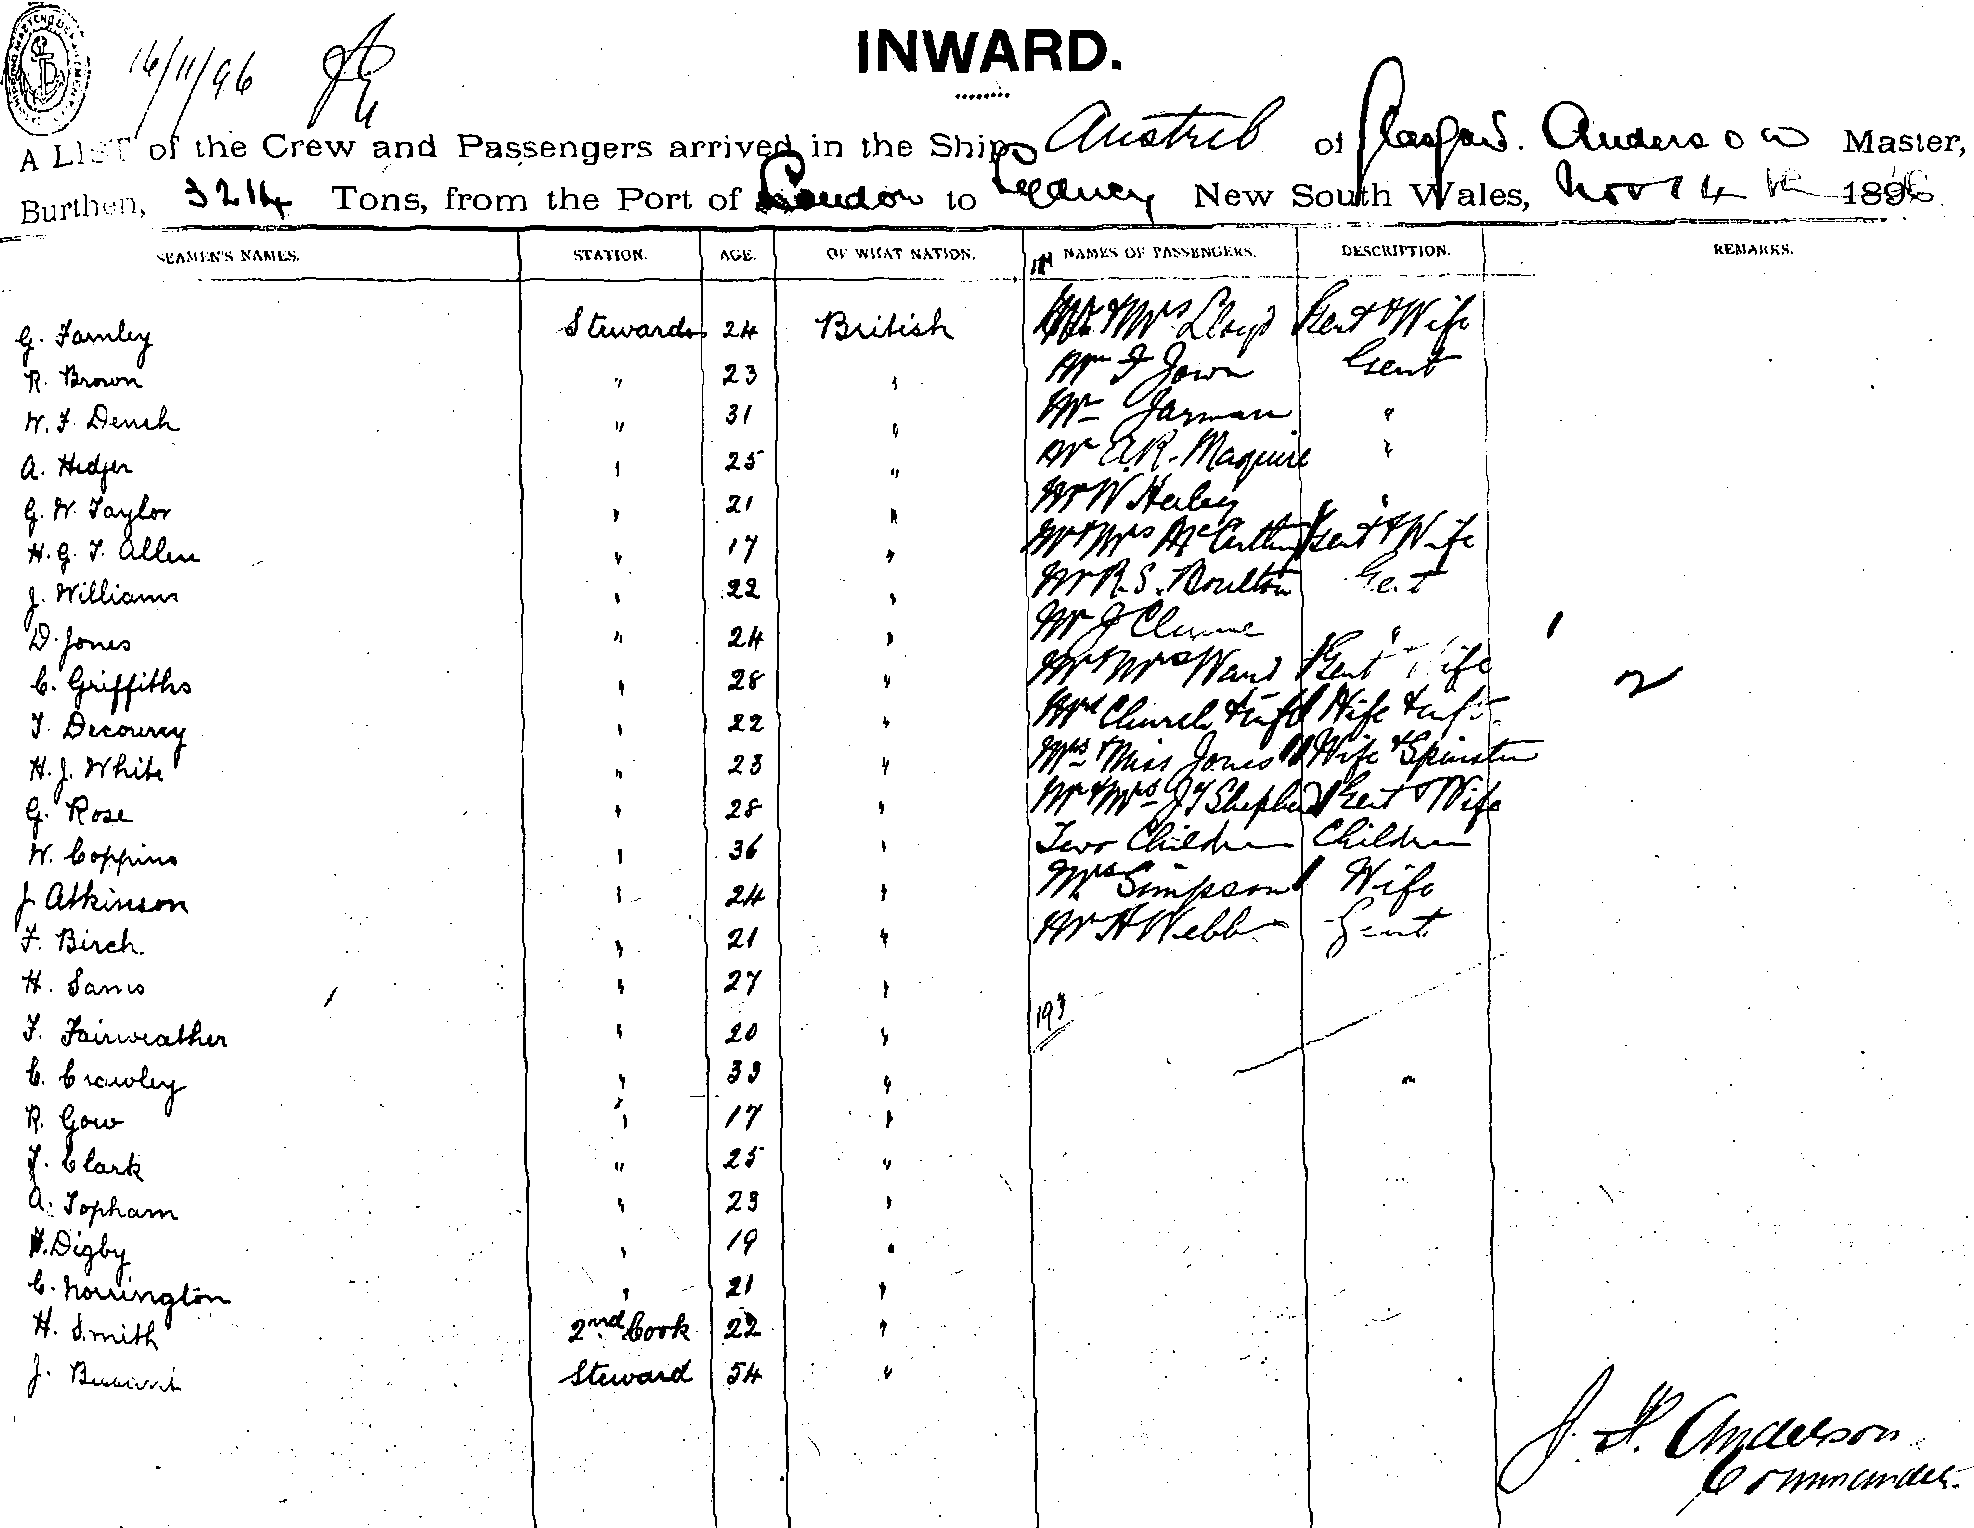 16/11/96
INWARD.
A LIST of the Crew and Passengers arrived in the Ship Austral of Glasgow. Anderson Master,
Burthen, 3214 Tons, from the Port of London to Sydney New South Wales, Nov 14th 1896
SEAMEN'S NAMES. STATION. AGE. OF WHAT NATION. NAMES OF PASSENGERS. DESCRIPTION. REMARKS.
G. Farnley Stewards 24 British Mr & Mrs Lloyd Gent & Wife
R. Brown " 23 " Mr F Gent
W. F. Dench " 31 " Mr Jarman "
A. Hedger " 25 " Mr A.R. Maguire "
G. W. Taylor " 21 " Mr W Healey "
H. G. F. Allen " 17 " Mr & Mrs McCarthy Gent & Wife
J. Williams " 22 " Mr R. S. Boulton Gent
D. Jones " 24 " Mr J "
C. Griffiths " 28 " Mr & Mrs Ward Gent Wife
T. Decourcy " 22 " Mrs Church & inft Wife & inft
H. J. White " 23 " Mrs & Miss Jones Wife & Spinster
G. Rose " 28 " Mr & Mrs J T Shepherd Gent & Wife
W. Coppins " 36 " Two Children Children
J. Atkinson " 24 " Mrs Simpson Wife
F. Birch. " 21 " Mr H Webb Gent
H. Sams " 27 "
F. Fairweather " 20 " 193
C. Crawley " 33 "
R. Gow " 17 "
F. Clark " 25 "
A. Topham " 23 "
F. Digby " 19 "
C. Norrington " 21 "
H. Smith 2nd Cook 22 "
J. Steward 54 "
J. F. Anderson
Commander.